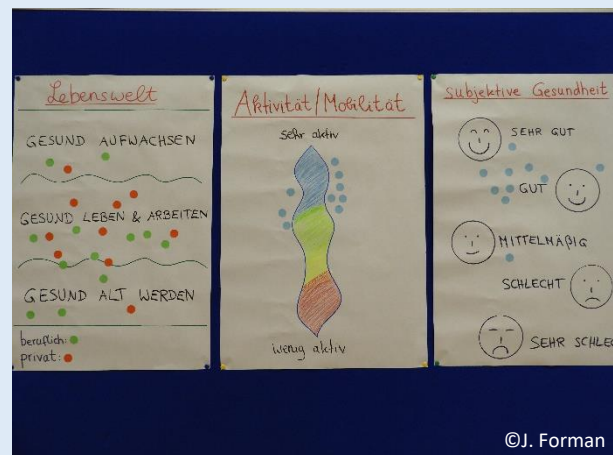 Lebenswelt
GESUND AUFWACHSEN
GESUND LEBEN & ARBEITEN
GESUND ALT WERDEN
beruflich:
privat:
Aktivität/Mobilität
sehr aktiv
wenig aktiv
subjektive Gesundheit
SEHR GUT
GUT
MITTELMÄßIG
SCHLECHT
SEHR SCHLEC
©J. Forman